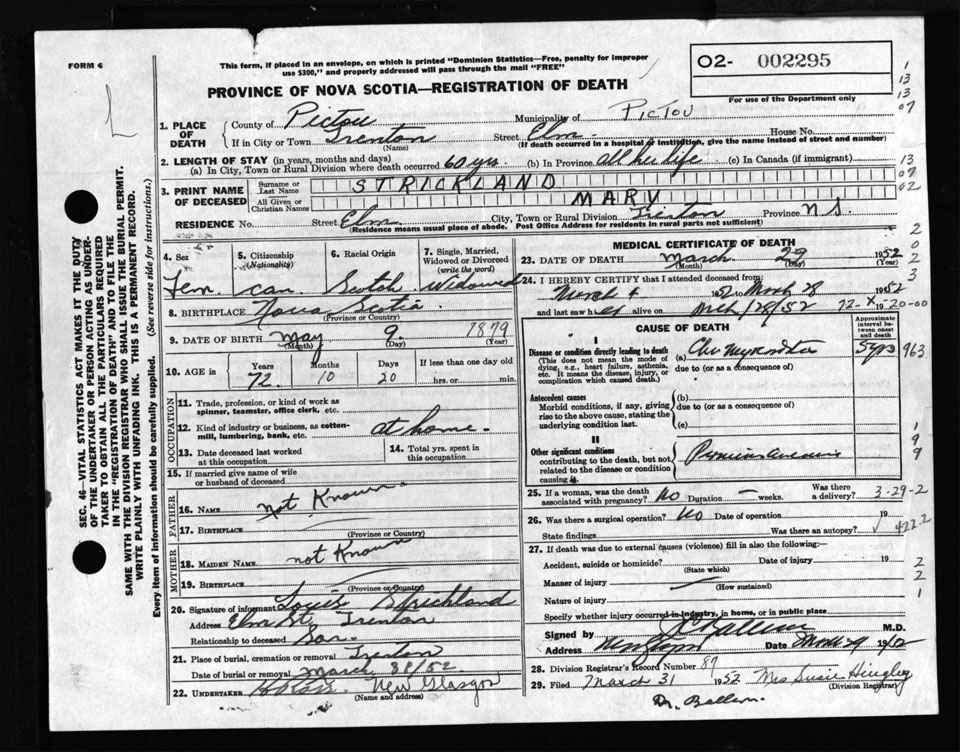 FORM 6
This form, if placed in an envelope, on which is printed "Dominion Statistics—Free, penalty for improper
use $300," and properly addressed will pass through the mail "FREE"
PROVINCE OF NOVA SCOTIA—REGISTRATION OF DEATH
O2- 002295
For use of the Department only
1. PLACE OF DEATH
County of Pictou Municipality of PICTOU
If in City or Town Trenton Street Elm House No.
(Name) (If death occurred in a hospital or institution, give the name instead of street and number)
2. LENGTH OF STAY (in years, months and days)
(a) In City, Town or Rural Division where death occurred 60 yrs. (b) In Province all her life (c) In Canada (if immigrant)
3. PRINT NAME OF DECEASED
Surname or Last Name STRICKLAND
All Given or Christian Names MARY
RESIDENCE No. Street Elm City, Town or Rural Division Trenton Province N.S.
(Residence means usual place of abode. Post Office Address for residents in rural parts not sufficient)
4. Sex Fem.
5. Citizenship (Nationality) Can.
6. Racial Origin Scotch
7. Single, Married, Widowed or Divorced (write the word) Widowed
8. BIRTHPLACE Nova Scotia
(Province or Country)
9. DATE OF BIRTH May 9. 1879
(Month) (Day) (Year)
10. AGE in Years Months Days If less than one day old
72. 10 20 hrs. or min.
OCCUPATION
11. Trade, profession, or kind of work as spinner, teamster, office clerk, etc.
12. Kind of industry or business, as cotton-mill, lumbering, bank, etc. at home.
13. Date deceased last worked at this occupation
14. Total yrs. spent in this occupation
15. If married give name of wife or husband of deceased
FATHER
16. NAME not Known.
17. BIRTHPLACE
(Province or Country)
MOTHER
18. MAIDEN NAME not Known
19. BIRTHPLACE
(Province or Country)
20. Signature of informant Louis Strickland
Address Elm St. Trenton
Relationship to deceased Son.
21. Place of burial, cremation or removal Trenton
Date of burial or removal March /52
22. UNDERTAKER New Glasgow
(Name and address)
MEDICAL CERTIFICATE OF DEATH
23. DATE OF DEATH March 29 1952
(Month) (Day) (Year)
24. I HEREBY CERTIFY that I attended deceased from:
March 9 1952 to March 28 1952
and last saw her alive on Mch/28/52 72-X 19 20-00
CAUSE OF DEATH
Approximate interval between onset and death
I
Disease or condition directly leading to death
(This does not mean the mode of dying, e.g., heart failure, asthenia, etc. It means the disease, injury, or complication which caused death.)
(a) Chr 5 yrs 963
due to (or as a consequence of)
Antecedent causes
Morbid conditions, if any, giving rise to the above cause, stating the underlying condition last.
(b)
due to (or as a consequence of)
(c)
II
Other significant conditions
contributing to the death, but not related to the disease or condition causing it.
Pernicious anaemia
25. If a woman, was the death associated with pregnancy? No Duration — weeks. Was there a delivery? 3-29-2
26. Was there a surgical operation? No Date of operation 19
State findings Was there an autopsy? 422-2
27. If death was due to external causes (violence) fill in also the following:—
Accident, suicide or homicide? Date of injury 19
(State which)
Manner of injury
(How sustained)
Nature of injury
Specify whether injury occurred in industry, in home, or in public place
Signed by Ballem M.D.
Address New Glasgow Date 19
28. Division Registrar's Record Number 87
29. Filed March 31 1952 Mrs Susie Hingley
(Division Registrar)
Dr. Ballem.
SEC. 46—VITAL STATISTICS ACT MAKES IT THE DUTY
OF THE UNDERTAKER OR PERSON ACTING AS UNDER-
TAKER TO OBTAIN ALL THE PARTICULARS REQUIRED
IN THE "REGISTRATION OF DEATH" AND TO FILE THE
SAME WITH THE DIVISION REGISTRAR WHO SHALL ISSUE THE BURIAL PERMIT.
WRITE PLAINLY WITH UNFADING INK. THIS IS A PERMANENT RECORD.
Every item of Information should be carefully supplied. (See reverse side for instructions.)
1
13
13
07
13
07
02
2
0
2
3
1
9
9
2
2
1